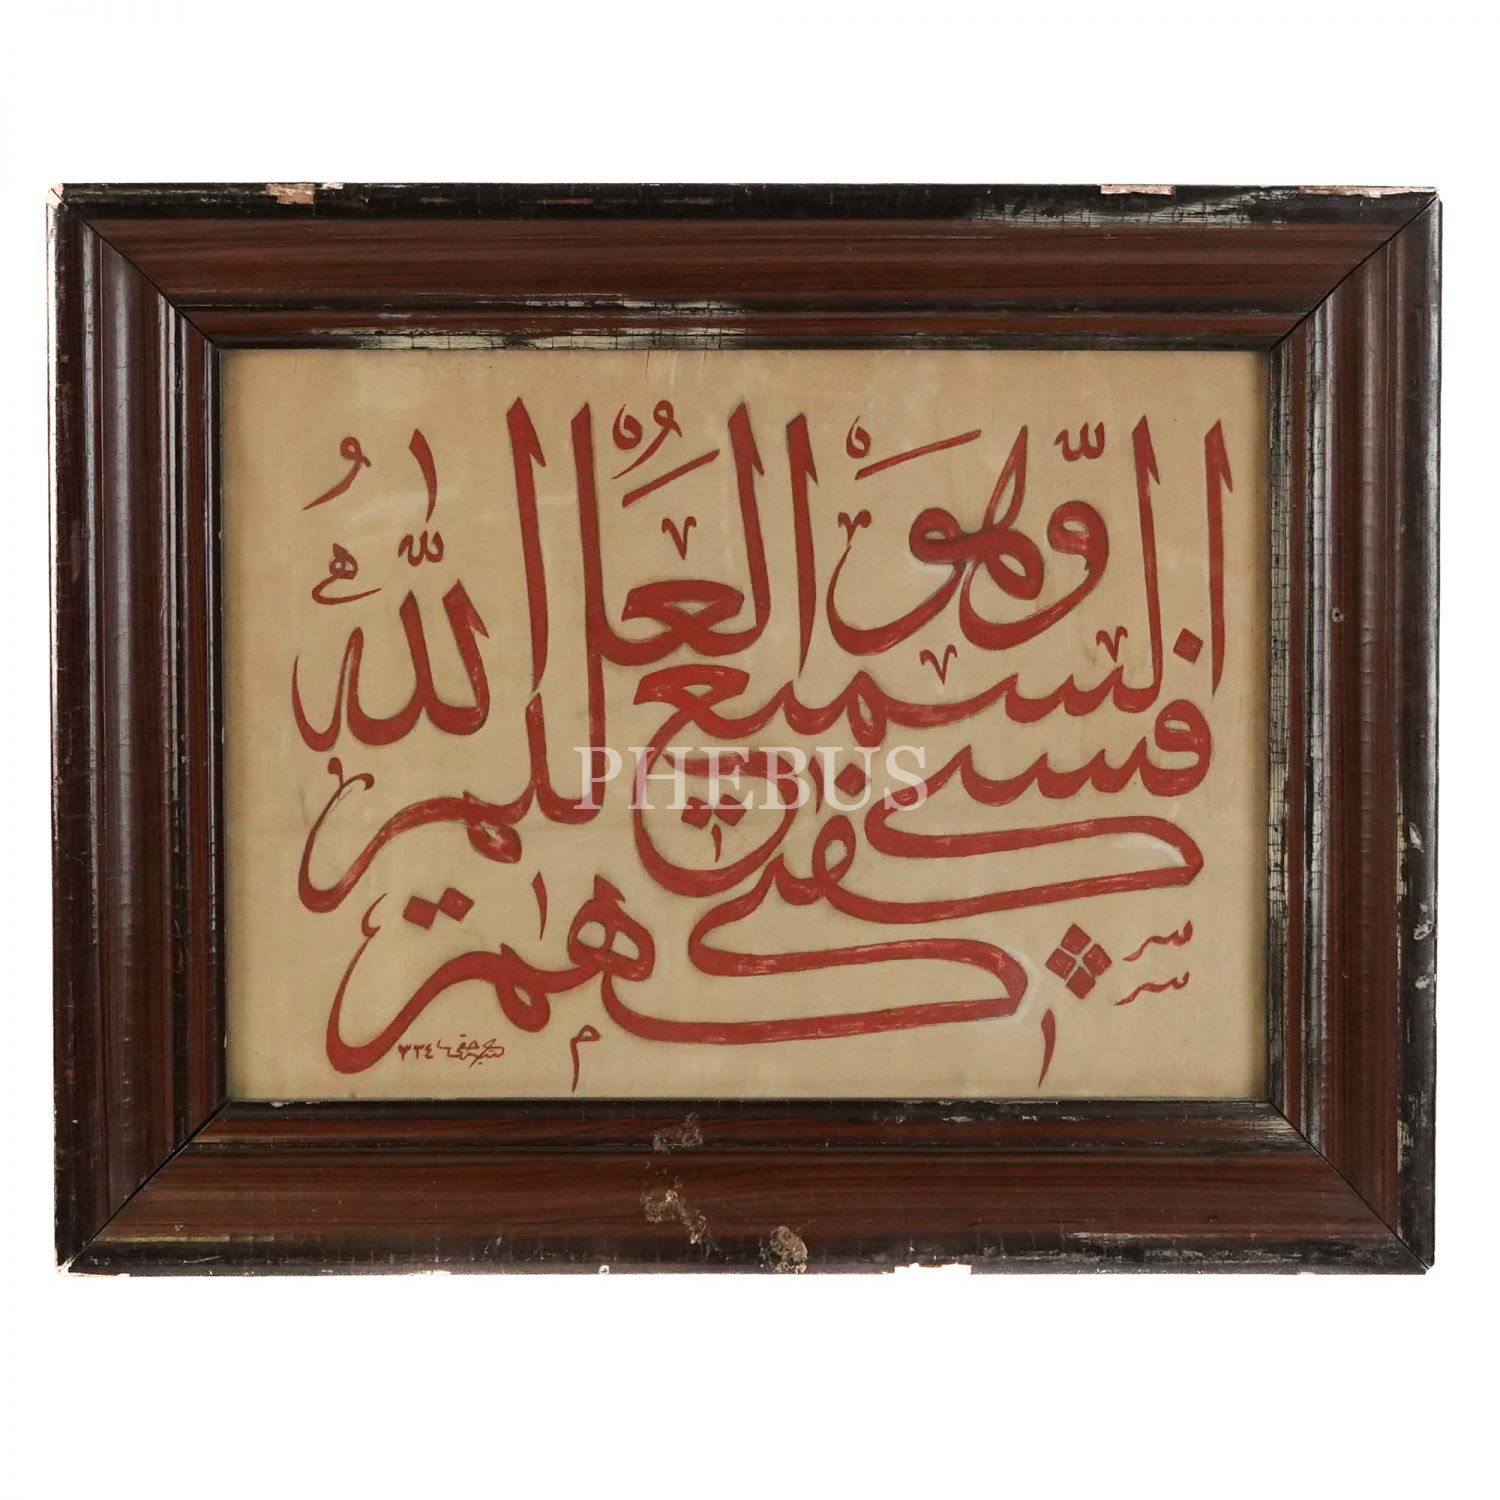 فسيكفيكهم الله
وهو السميع العليم
٣٣٤
PHEBUS